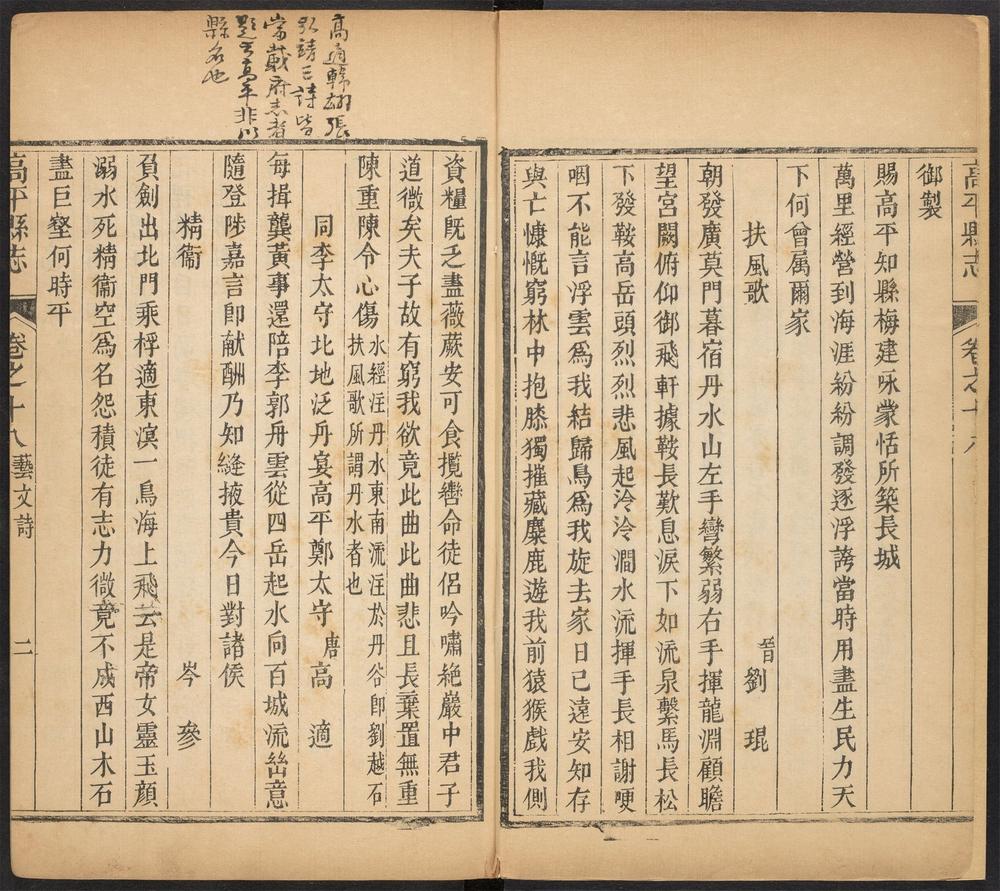 高平縣志
卷之十八
御製
賜高平知縣梅建詠蒙恬所築長城
萬里經營到海涯紛紛調發逐浮誇當時用盡生民力天
下何曾属爾家
扶風歌 晉劉琨
朝發廣莫門暮宿丹水山左手彎繁弱右手揮龍淵顧瞻
望宮闕俯仰御飛軒據鞍長歎息淚下如流泉繫馬長松
下發鞍高岳頭烈烈悲風起泠泠澗水流揮手長相謝哽
咽不能言浮雲爲我結歸鳥爲我旋去家日已遠安知存
與亡慷慨窮林中抱膝獨摧藏麋鹿遊我前猿猴戲我側
高適韓翃張
弘靖三詩皆
當載府志者
題有高平非以
縣名也
資糧既乏盡薇蕨安可食攬轡命徒侶吟嘯絶巖中君子
道微矣夫子故有窮我欲竟此曲此曲悲且長棄置無重
陳重陳令心傷 水經注丹水東南流注於丹谷卽劉越石
扶風歌所謂丹水者也
同李太守北地泛舟宴高平鄭太守 唐高適
每揖龔黃事還陪李郭舟雲從四岳起水向百城流幽意
隨登陟嘉言卽献酬乃知縫掖貴今日對諸侯
精衞 岑參
負劍出北門乘桴適東溟一鳥海上飛云是帝女靈玉顔
溺水死精衞空爲名怨積徒有志力微竟不成西山木石
盡巨壑何時平
高平縣志
卷之十八 藝文詩
二